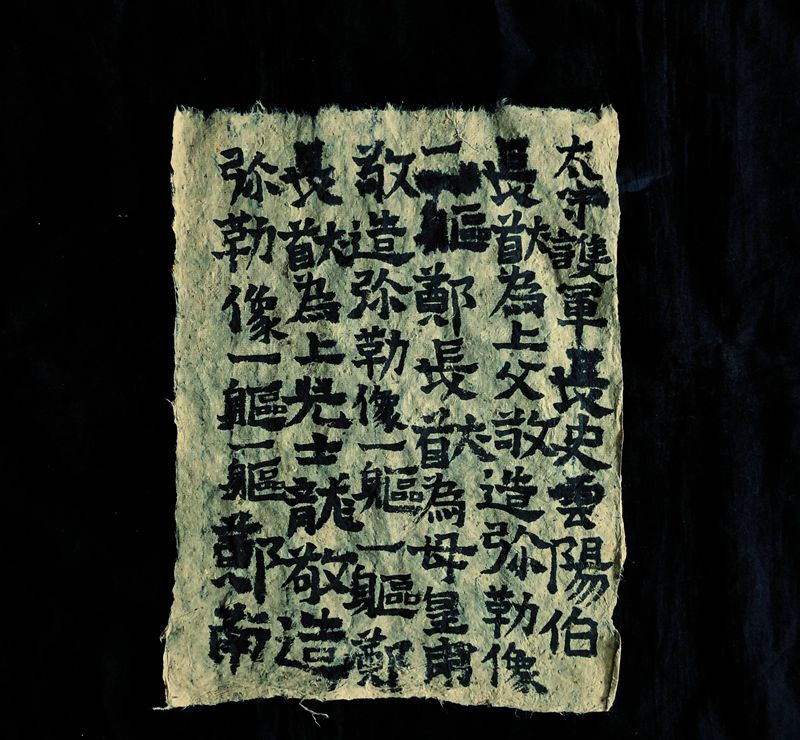 太守護軍長史雲陽伯
長猷為上父敬造弥勒像
二軀鄭長猷為母皇甫
敬造弥勒像一軀一軀鄭
長猷為上兒士龍敬造
弥勒像一軀一軀鄭南